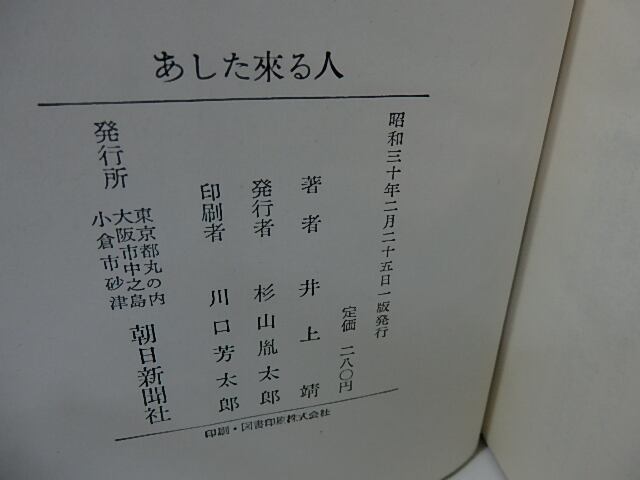 あした來る人
昭和三十年二月二十五日一版発行
定価 二八〇円
著者 井上靖
発行者 杉山胤太郎
印刷者 川口芳太郎
発行所
東京都丸の内
大阪市中之島
小倉市砂津
朝日新聞社
印刷・図書印刷株式会社